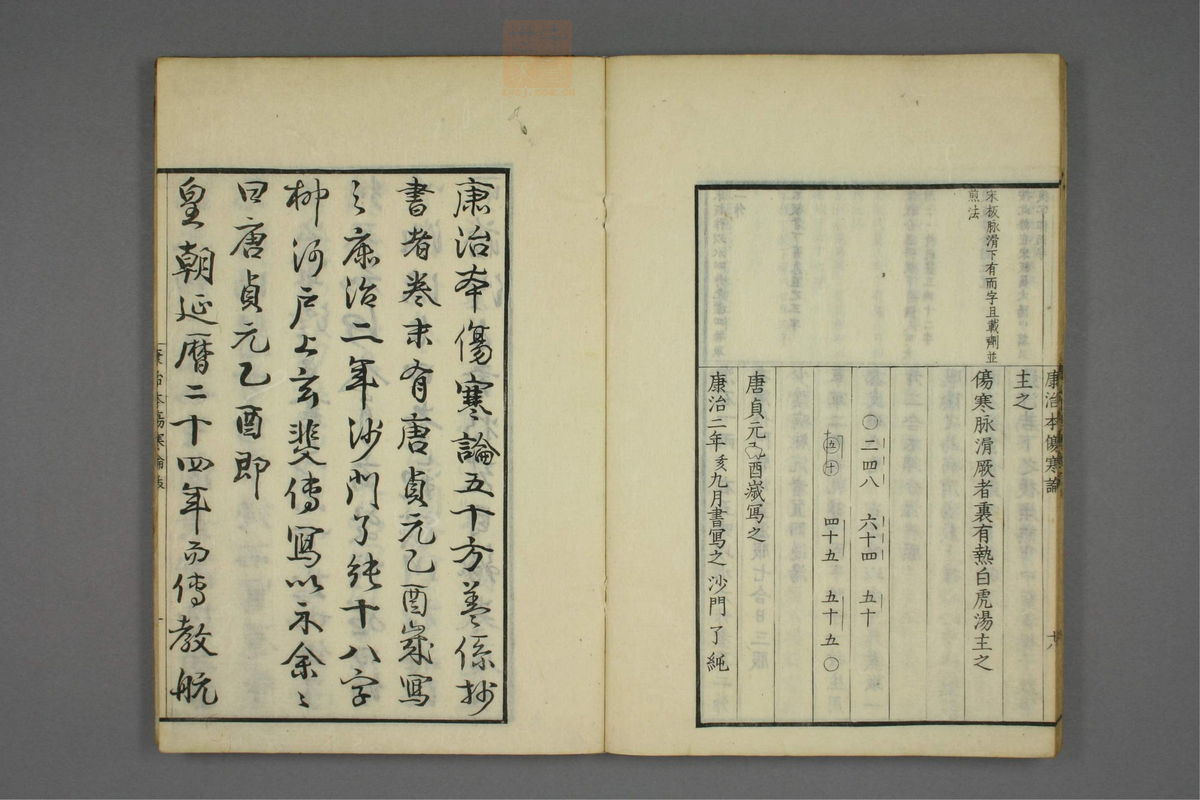 康治本傷寒論
廿八
宋板脉滑下有而字且載劑並
煎法
主之
傷寒脉滑厥者裏有熱白虎湯主之
〇二四八 六十四 五十
十五十 四十五 五十五〇
唐貞元乙酉歳写之
康治二年亥九月書寫之 沙門了純
康治本傷寒論五十方蓋係抄
書者卷末有唐貞元乙酉歲寫
之康治二年沙門了純十八字
柳河戸上玄斐傳寫以示余々
曰唐貞元乙酉即
皇朝延曆二十四年而傳教航
康治本傷寒論跋
一